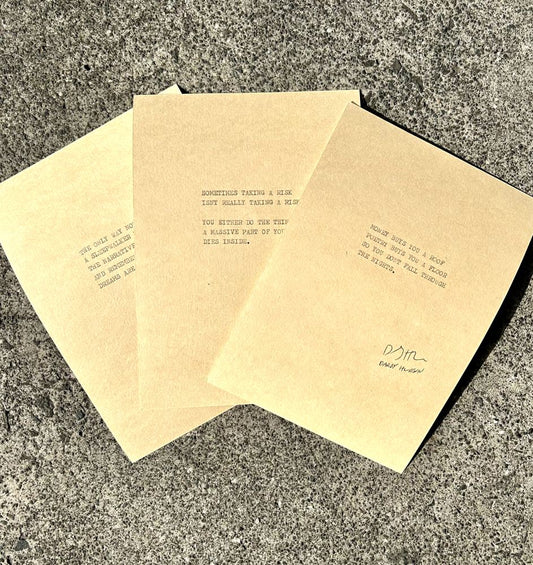 THE ONLY WAY NO
A SLEEPWALKER
THE NARRATIVE
AND REMEMBER
DREAMS ARE
SOMETIMES TAKING A RISK
ISNT REALLY TAKING A RISK
YOU EITHER DO THE THIN
A MASSIVE PART OF YOU
DIES INSIDE.
MONEY BUYS YOU A ROOF
POETRY BUYS YOU A FLOOR
SO YOU DONT FALL THROUGH
THE NIGHTS.